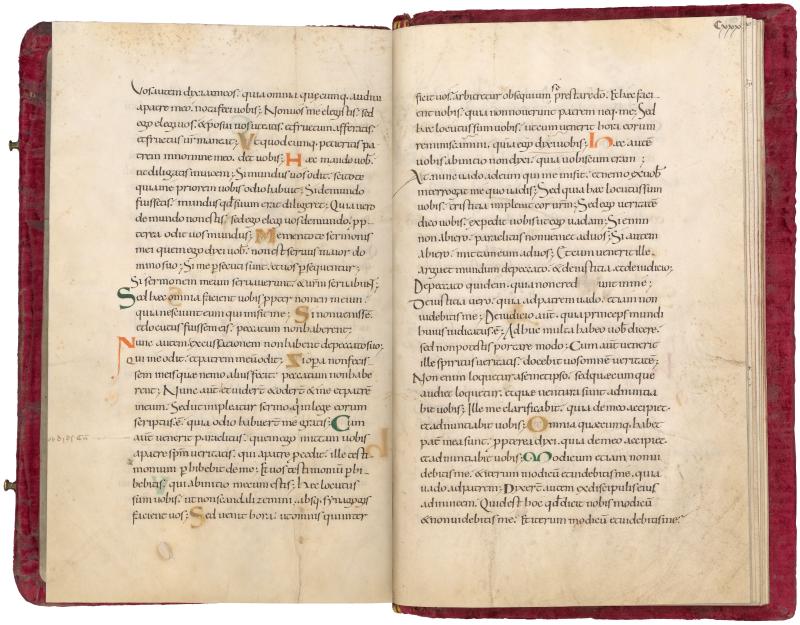 Vos autem dixi amicos. quia omnia quęcumq; audivi
a patre meo. nota feci vobis; Non vos me elegistis. sed
ego elegi vos. & posui vos ut eatis. et fructum afferatis.
et fructus ur̄ maneat; Ut quodcumq; petieritis pa
trem in nomine meo. det vobis; Hęc mando vob̄.
ut diligatis invicem; Si mundus vos odit. scitote
quia me priorem vobis odio habuit; Si de mundo
fuissetis. mundus qđ suum erat diligeret; Quia vero
de mundo non estis. sed ego elegi vos de mundo. pp̄
terea odit vos mundus; Mementote sermonis
mei quem ego dixi vob̄. non est servus maior do
mino suo; Si me p̱secuti sunt. et vos p̱sequentur;
Si sermonem meum servaverunt. & vr̄m servabunt;
Sed hęc omnia facient vobis p̱pter nomen meum.
quia nesciunt eum qui misit me; Si non venissem
et locutus fuissem eis. peccatum non haberent;
Nunc autem excusationem non habent de peccato suo;
Qui me odit. et patrem meū odit; Si opa non fecissem
sem in eis que nemo alius fecit. peccatum non habe
rent; Nunc aut̄ et vidert̄ & odert̄ & me et patrē
meum. Sed ut impleatur sermo. qui in lege eorum
scriptus ē. quia odio habuert̄ me gratis; Cum
aut̄ venerit paraclitus. quem ego mittam vobis
a patre spm̄ veritatis. qui a patre p̱cedit. ille testi
monium p̱hibebit de me; Et vos testimoniū p̱hi
bebitis; qui ab initio mecum estis; Hęc locutus
sum vobis. ut non scandalizemini. absq; synagogis
facient vos; Sed venit hora. ut omnis qui inter
Cxxx
ficit vos. arbitretur obsequium se prestare dō. Et hęc faci
ent vobis. quia non noverunt patrem neq; me; Sed
hęc locutus sum vobis. ut cum venerit hora eorum
reminiscamini. quia ego dixi vobis; Hęc aut̄
vobis ab initio non dixi. quia vobiscum eram;
At nunc vado ad eum qui me misit. et nemo ex vob̄
interrogat me quo vadis; Sed quia hęc locutus sum
vobis. tristitia implevit cor vr̄m; Sed ego veritatē
dico vobis. expedit vobis ut ego vadam; Si enim
non abiero. paraclitus non veniet ad vos; Si autem
abiero. mittam eum ad vos; Et cum venerit ille.
arguet mundum de peccato. & de iustitia. et de iudicio;
De peccato quidem. quia non cred unt in me;
De iustitia vero. quia ad patrem vado. et iam non
videbitis me; De iudicio aut̄. quia princeps mundi
huius iudicatus ē; Adhuc multa habeo vob̄ dicere.
sed non potestis portare modo; Cum aut̄ venerit
ille spiritus veritatis. docebit vos omnē veritatē;
Non enim loquetur a semetipso. sed quecumque
audiet loquetur. et que ventura sunt adnuntia
bit vobis; Ille me clarificabit. quia de meo accipiet.
et adnuntiabit vobis; Omnia quęcumq; habet
pat̄ mea sunt. p̱pterea dixi. quia de meo accipiet.
et adnuntiabit vobis; Modicum et iam non vi
debitis me. & iterum modicū et videbitis me. quia
vado ad patrem; Dixert̄ autem ex discipulis eius
ad invicem. Quid est hoc qđ dicit nobis modicū
& non videbitis me. Et iterum modicū et videbitis me.